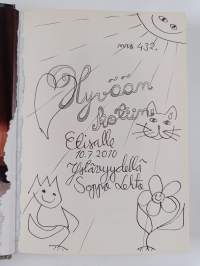 Hyvään
kotiin
Elisalle
10.7.2010
Ystävyydellä
Seppo Lehto